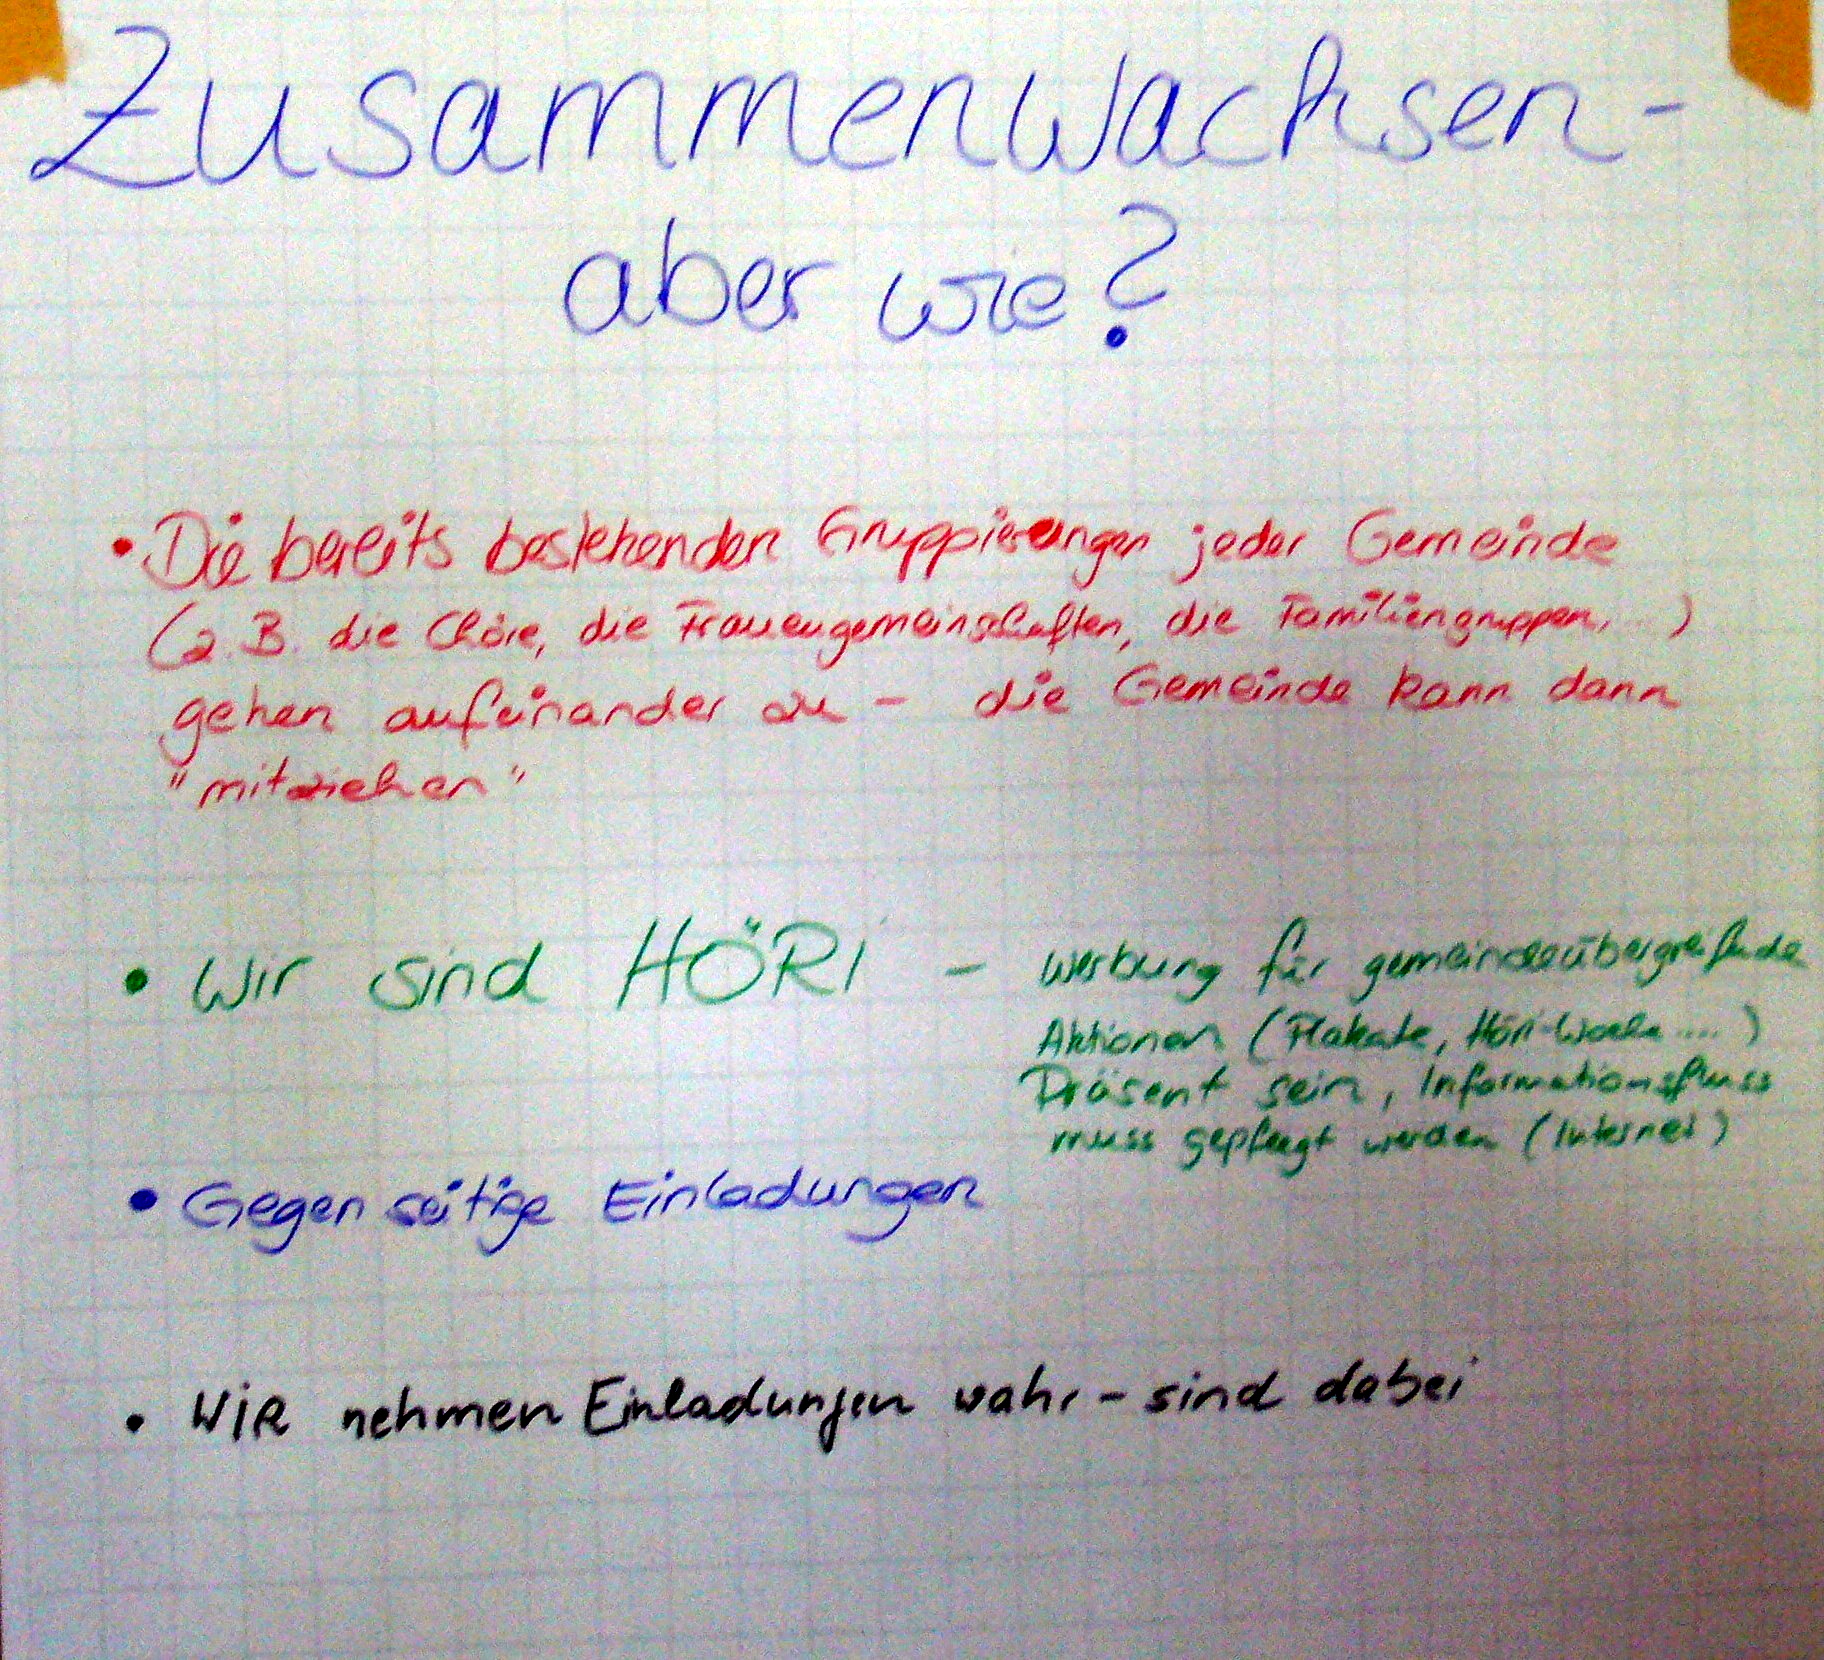 Zusammenwachsen -
aber wie?
• Die bereits bestehenden Gruppierungen jeder Gemeinde
(z.B. die Chöre, die Frauengemeinschaften, die Familiengruppen, ...)
gehen aufeinander zu - die Gemeinde kann dann
"mitziehen"
• Wir sind HÖRI - Werbung für gemeindeübergreifende
Aktionen (Plakate, Höri-Woche ....)
Präsent sein, Informationsfluss
muss gepflegt werden (Internet)
• Gegenseitige Einladungen
• Wir nehmen Einladungen wahr - sind dabei